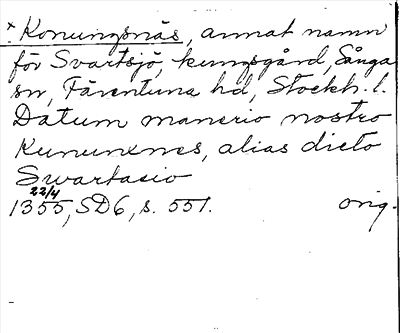 * Konungsnäs, annat namn
för Svartsjö, kungsgård, Sånga
sn, Färentuna hd, Stockh. l.
Datum manerio nostro
Kununxnes, alias dicto
Swartasio
22/4
1355, SD6, s. 551. orig.